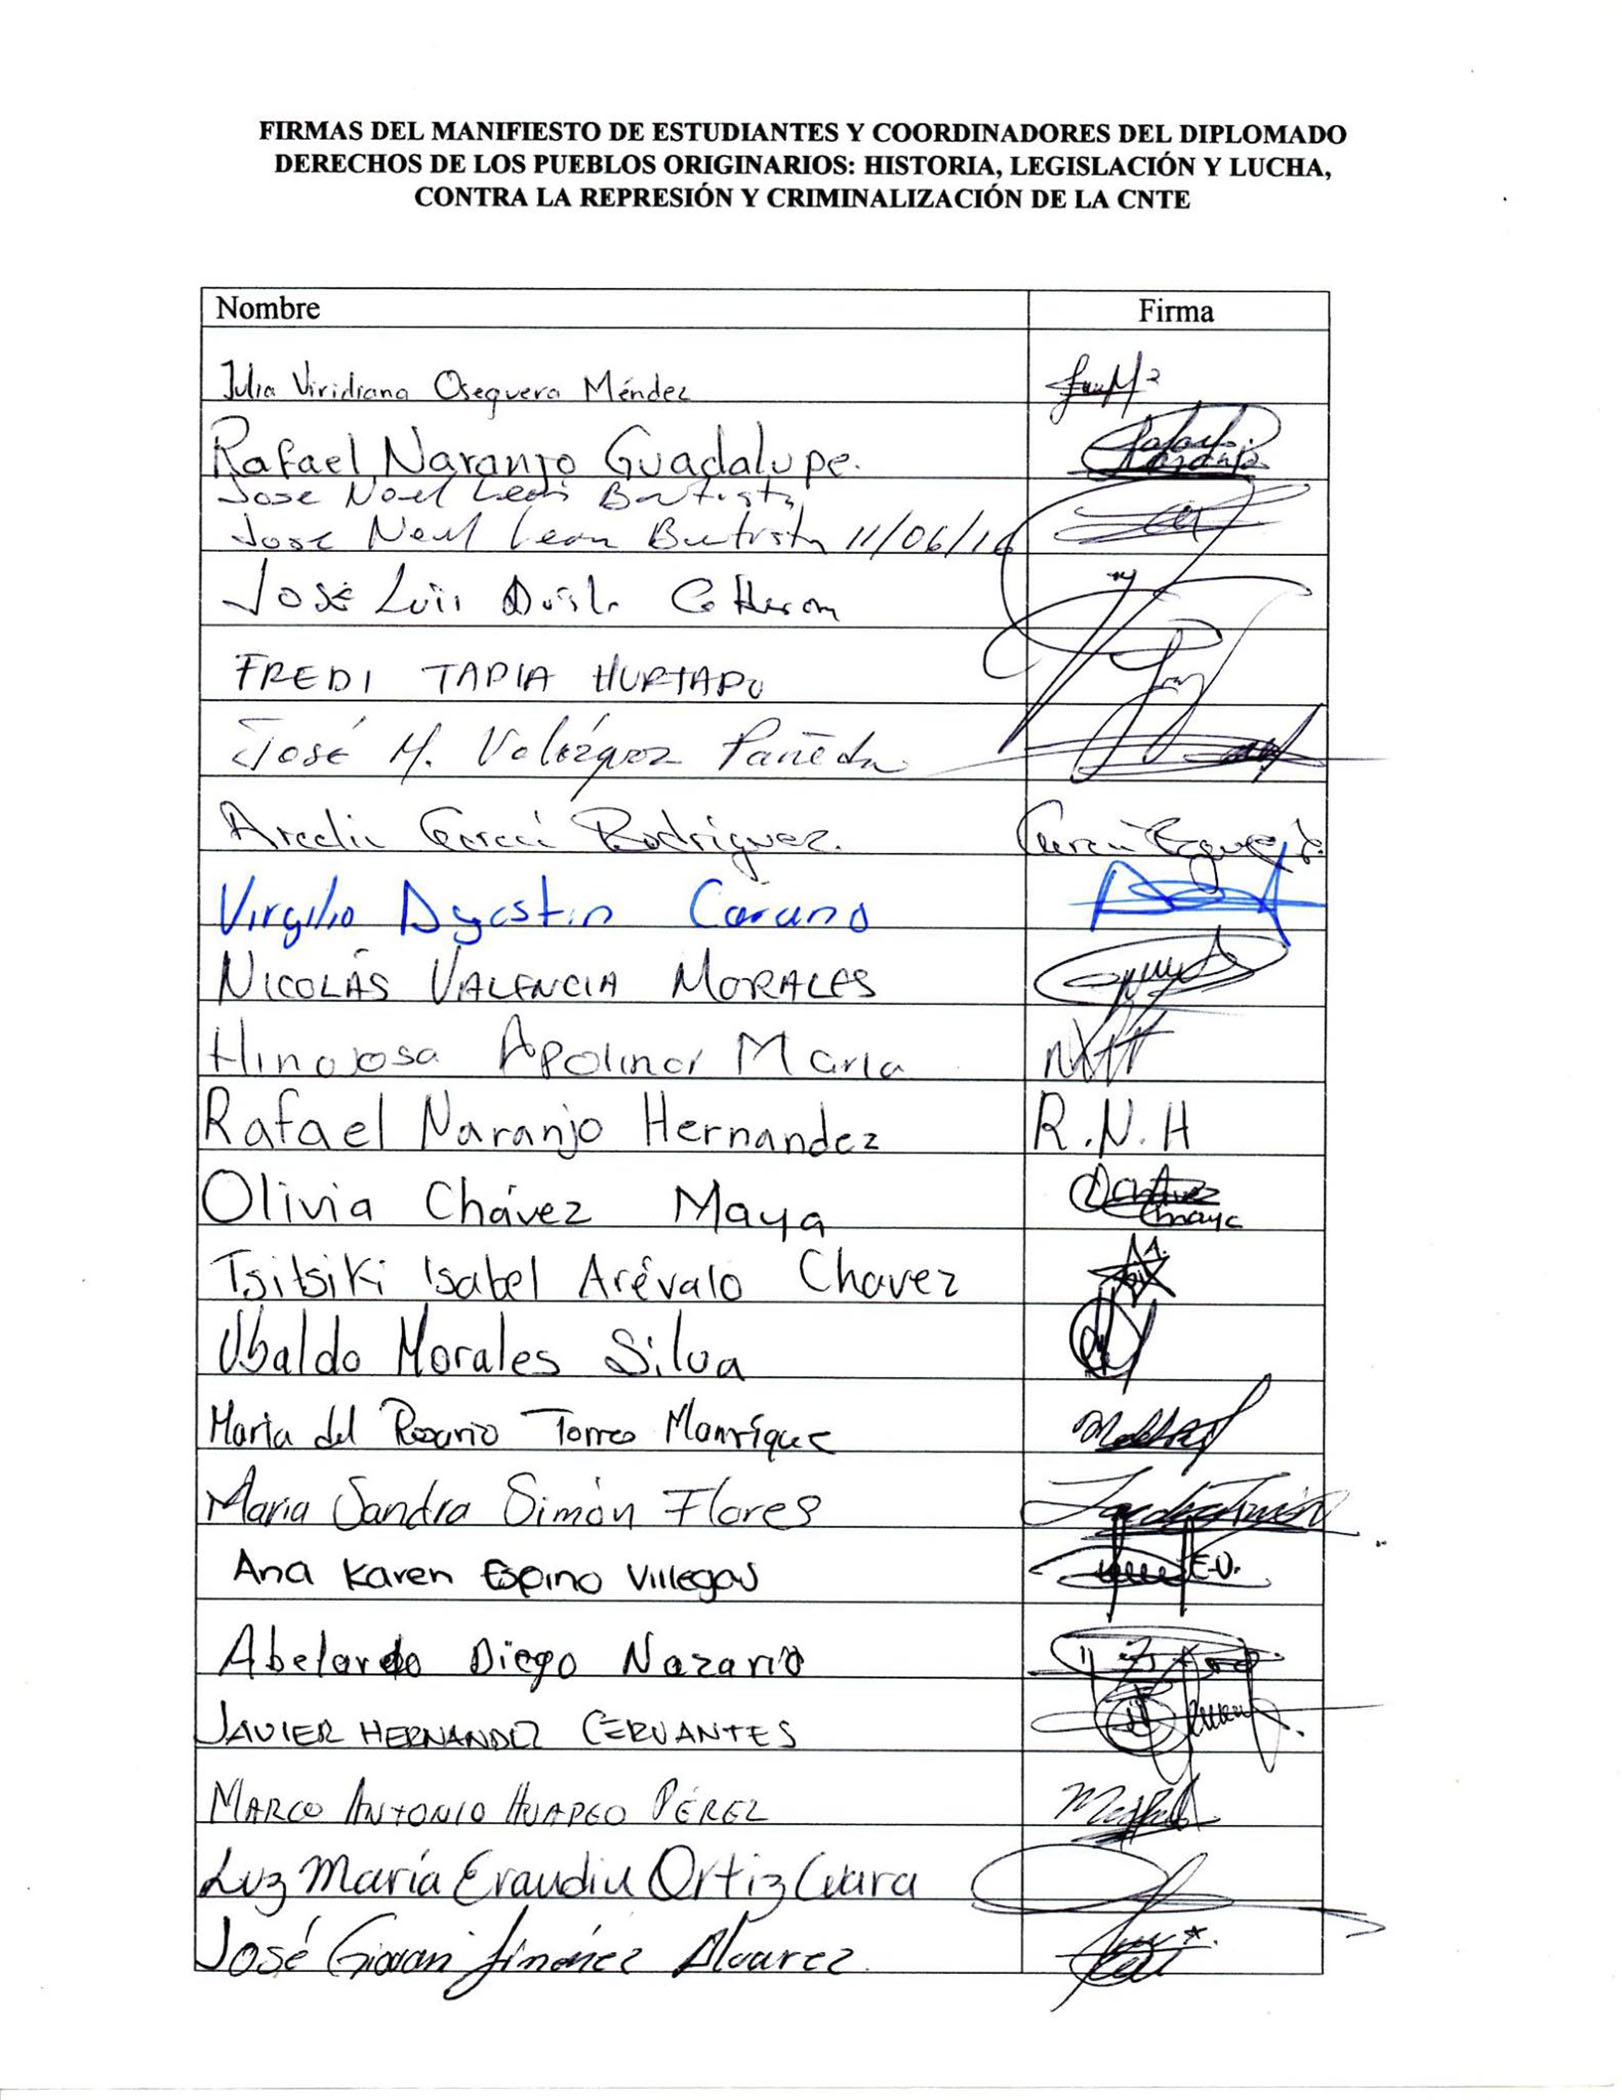 FIRMAS DEL MANIFIESTO DE ESTUDIANTES Y COORDINADORES DEL DIPLOMADO
DERECHOS DE LOS PUEBLOS ORIGINARIOS: HISTORIA, LEGISLACIÓN Y LUCHA,
CONTRA LA REPRESIÓN Y CRIMINALIZACIÓN DE LA CNTE
Nombre Firma
Julia Viridiana Oseguera Méndez
Rafael Naranjo Guadalupe.
Jose Noel Leon Bautista
Jose Noel Leon Bautista 11/06/16
José Luis
FREDI TAPIA HURTADO
José M. Velázquez Pañeda
Arcelia García Rodríguez.
Virgilio Agustin
NICOLÁS VALENCIA MORALES
Hinojosa Apolinar María
Rafael Naranjo Hernandez R.N.H
Olivia Chávez Maya
Tsitsiki Isabel Arévalo Chavez
Ubaldo Morales Silva
Maria del Rosario Torres Manríquez
Maria Sandra Simón Flores
Ana Karen Espino Villegas E.V.
Abelardo Diego Nazario
JAVIER HERNANDEZ CERVANTES
MARCO ANTONIO HUAPEO PÉREZ
Luz María Eraudiu Ortiz Cuara
José Giovani Jiménez Alvarez.